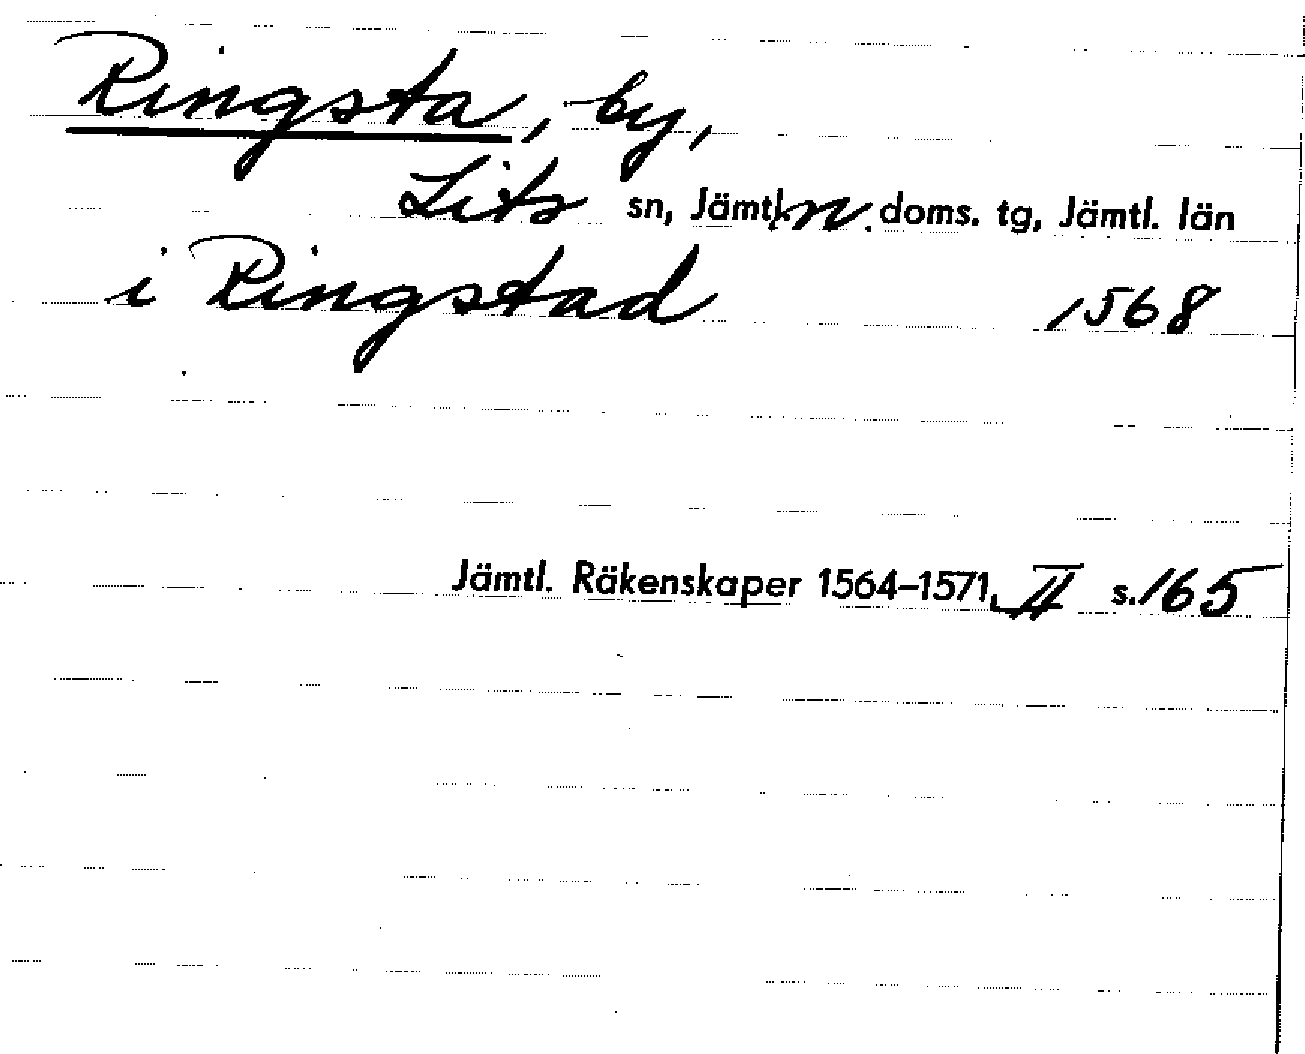 Ringsta, by,
Lits sn, Jämtl. n. doms. tg, Jämtl. län
i Ringstad 1568
Jämtl. Räkenskaper 1564–1571, II s. 165